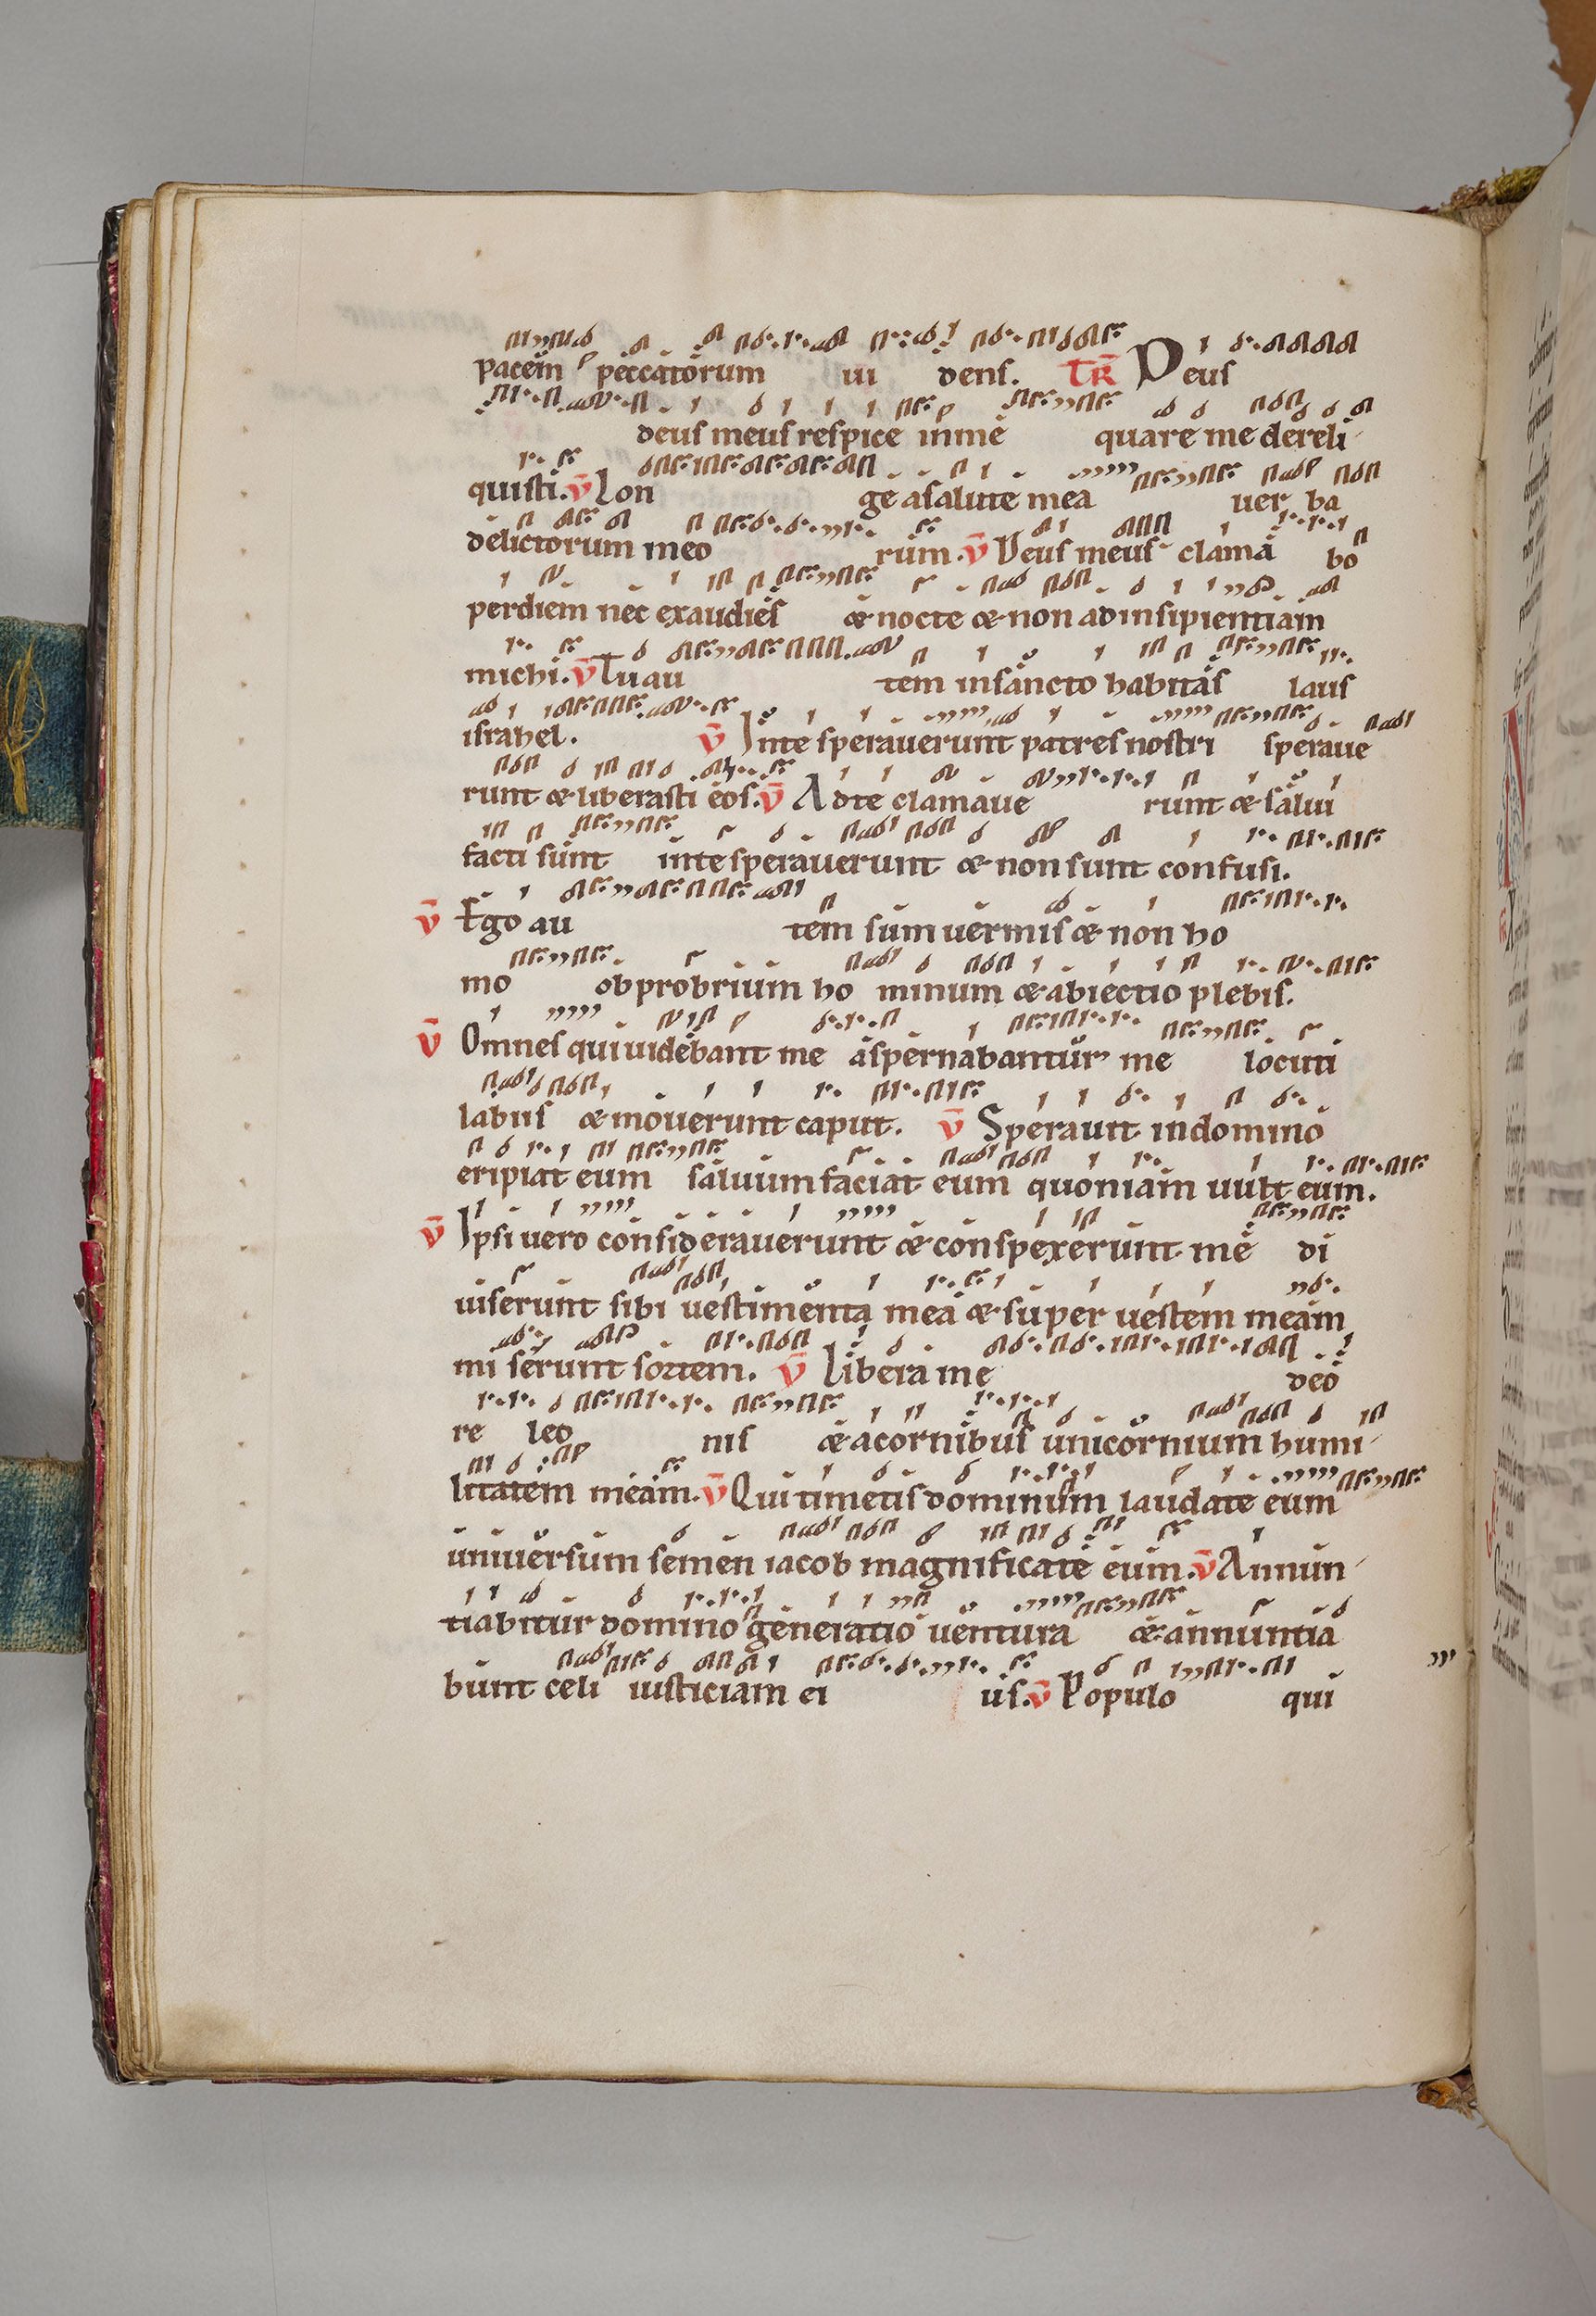 pacem peccatorum ui dens. TR̄ Deus
deus meus respice in me quare me dereli
quisti. v̄ Lon ge a salute mea uer ba
delictorum meo rum. v̄ Deus meus clama bo
perdiem nec exaudies & nocte & non ad insipientiam
michi. v̄ Tu au tem in sancto habitas laus
israhel. v̄ In te sperauerunt patres nostri speraue
runt & liberasti eos. v̄ Ad te clamaue runt & salui
facti sunt in te sperauerunt & non sunt confusi.
v̄ Ego au tem sum uermis & non ho
mo obprobrium ho minum & abiectio plebis.
v̄ Omnes qui uidebant me aspernabantur me locuti
labiis & mouerunt caput. v̄ Sperauit in domino
eripiat eum saluum faciat eum quoniam uult eum.
v̄ Ipsi uero considerauerunt & conspexerunt me di
uiserunt sibi uestimenta mea & super uestem meam
mi serunt sortem. v̄ Libera me deo
re leo nis & a cornibus unicornium humi
litatem meam. v̄ Qui timetis dominum laudate eum
uniuersum semen iacob magnificate eum. v̄ Annun
tiabitur domino generatio uentura & annuntia
bunt celi iusticiam ei us. v̄ Populo qui